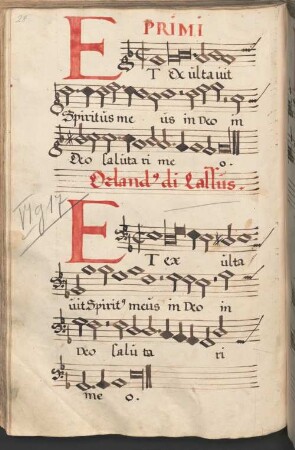 PRIMI
ET Exultauit
Spiritus me us in Deo in
Deo saluta ri me o.
Orland⁹ di Lassus.
ET ex ulta
uit Spirit⁹ meus in Deo in
Deo salu ta ri
me o.